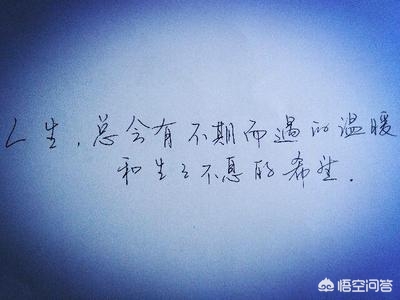 人生，总会有不期而遇的温暖
和生生不息的希望.
悟空问答